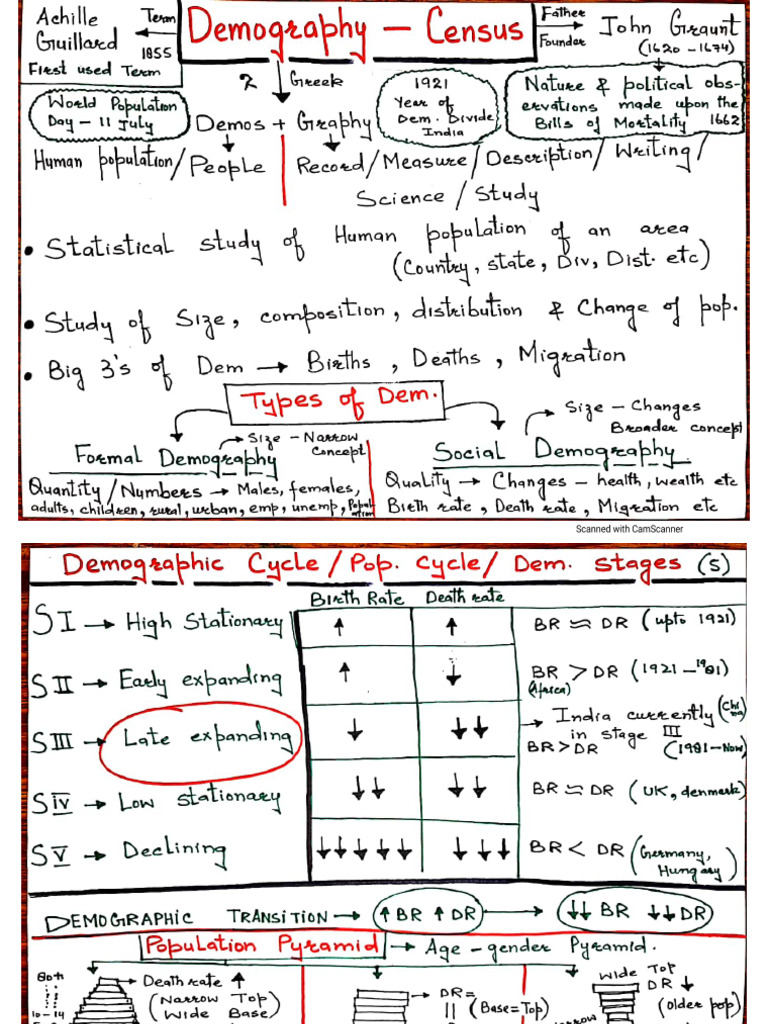 Achille Guillard
Term
1855
First used Term
Demography – Census
Father
Founder
John Graunt
(1620 – 1674)
World Population
Day – 11 July
Greek
1921
Year of
Dem. Divide
India
Nature & political obs-
ervations made upon the
Bills of Mortality 1662
Demos + Graphy
Human population/People
Record/Measure/Description/Writing/
Science/Study
• Statistical study of Human population of an area
(Country, state, Div, Dist. etc)
• Study of Size, composition, distribution & Change of pop.
• Big 3's of Dem → Births, Deaths, Migration
Types of Dem.
Formal Demography
Size – Narrow
Concept
Quantity/Numbers → Males, females,
adults, children, rural, urban, emp, unemp, Popul-
ation
Social Demography
Size – Changes
Broader concept
Quality → Changes – health, wealth etc
Birth rate, Death rate, Migration etc
Scanned with CamScanner
Demographic Cycle/Pop. cycle/Dem. stages (5)
Birth Rate Death rate
S I → High Stationary ↑ ↑ BR ≈ DR (upto 1921)
S II → Early expanding ↑ ↓ BR > DR (1921 – 1981)
(Africa)
S III → Late expanding ↓ ↓↓ → India currently (China)
in stage III
BR > DR (1981 – Now)
S IV → Low stationary ↓↓ ↓↓ BR ≈ DR (UK, denmark)
S V → Declining ↓↓↓↓↓ ↓↓↓ BR < DR (Germany,
Hungary)
DEMOGRAPHIC TRANSITION → ↑BR ↑DR → ↓↓ BR ↓↓DR
Population Pyramid → Age – gender Pyramid.
80+
10 – 14
Death rate ↑
(Narrow Top)
Wide Base)
DR =
|| (Base = Top)
Wide Top
DR ↓
(older pop)